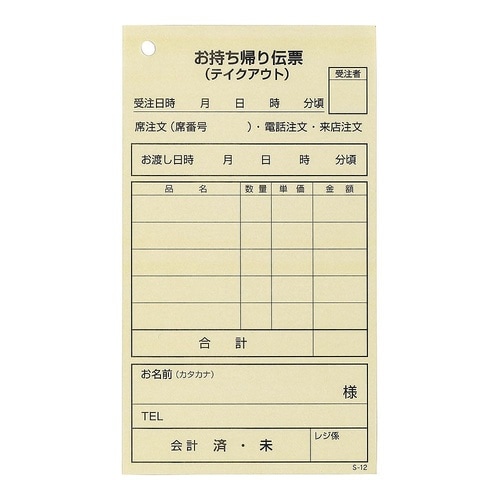 お持ち帰り伝票
（テイクアウト）
受注者
受注日時　月　日　時　分頃
席注文（席番号　　　）・電話注文・来店注文
お渡し日時　月　日　時　分頃
品　名　数量　単価　金額
合　計
お名前（カタカナ）
様
TEL
会計　済・未
レジ係
S-12